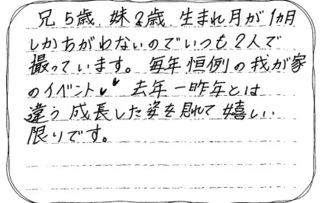 兄5歳、妹2歳、生まれ月が1カ月
しかちがわないのでいつも2人で
撮っています。毎年恒例の我が家
のイベント♥♥ 去年一昨年とは
違う成長した姿を見れて嬉しい
限りです。